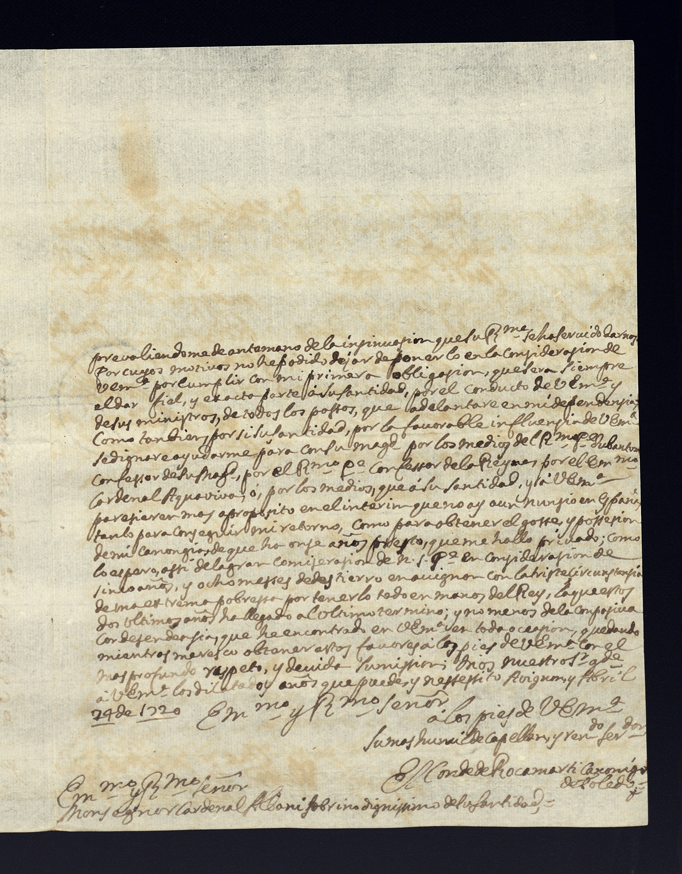 prevaliendome de antemano de la insinuasion que su Rma se ha servido darnos
Por cuyos motivos no he podido dejar de ponerlo en la Considerasion de
VEma por cumplir con mi primera obligasion, que sera siempre
el dar fiel, y exacta parte à su santidad, por el conducto de VEma y
de sus ministros, de todos los passos, que adelantare en mi dependensia,
Como tambien, por si su santidad, por la favorable influensia de VEma
se dignare ayudarme para con su Magd por los medios del Rmo Pe
Confessor de su Magd, por el Rmo Pe Confessor de la Reyna, por el Emmo
Cardenal Aquaviva, o, por los medios, que à su santidad, y à VEma
paresieren mas aproposito en el interin que no ay aun nunsio en España,
tanto para Conseguir mi retorno, Como para obtener el gosse, y possesion
de mi Canongia, de que ha onse años presto, que me hallo privado; como
lo espero, assi de la gran Comiserasion de n. S. Pe en Considerasion de
sinco años, y ocho messes de destierro en avignon con la triste sircunstansia
de una extrema pobressa por tenerlo todo en manos del Rey, la que estos
dos ultimos años ha llegado al ultimo termino; y no menos de la Compasiva
Condesendensia, que he encontrado en VEma en toda ocasion, quedando
mientras meresco obtener estos favores à los pies de VEma con el
mas profundo respeto, y devida sumission; Dios nuestro sr gde
à VEma los dilatados años que puede, y nessessito Avignon, y Abril
24 de 1720 Emmo y Rmo señor
à los pies de VEma
su mas humilde Capellan, y rendo serdor
El Conde de Rocamarti Canonigo
de Toledo
Emmo y Rmo señor
Monseñor Cardenal Albani sobrino dignissimo de su santidad =